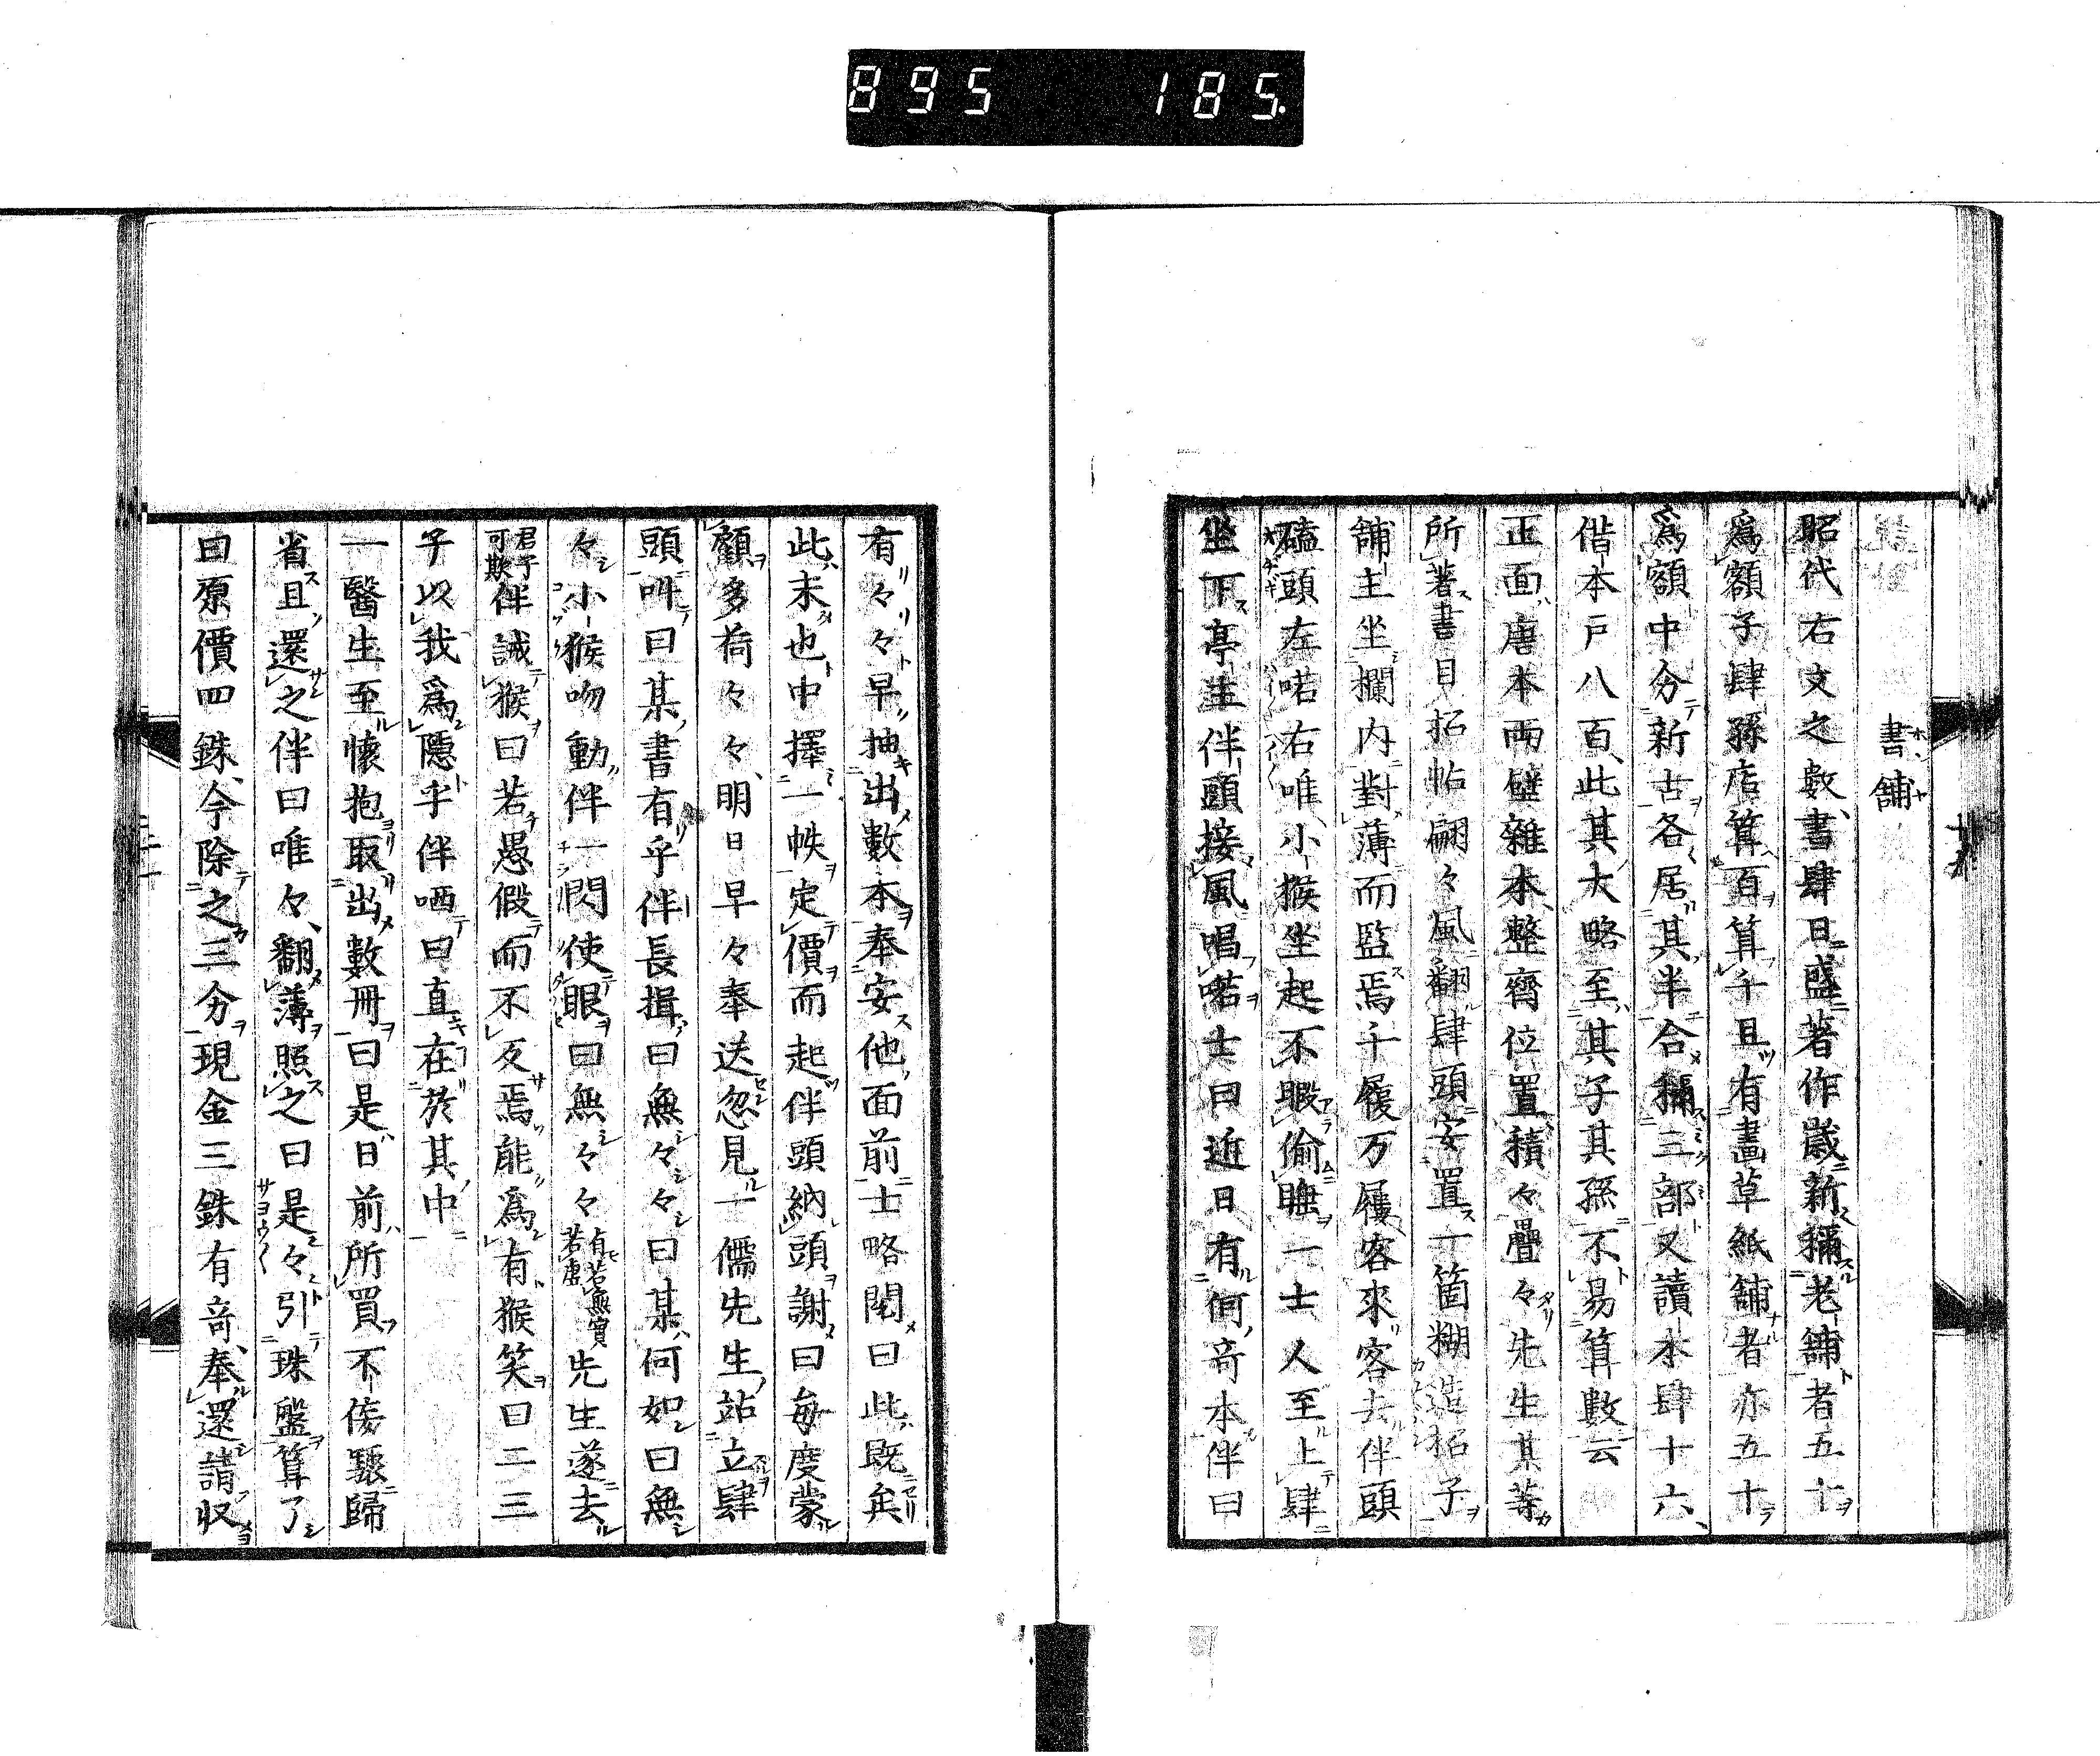 895 185.
書舗
昭代右文之數、書肆日盛、著作歳新、稱老舗者五十
爲額、子肆孫店算百算千、且有畫草紙舗者亦五十
爲額、中分新古各居其半、合稱三部、又讀本肆十六、
偕本戸八百、此其大略、至其子其孫不易算數云
正面唐本、両壁雜本、整齊位置、積々疊々、先生某等
所著書目招帖翩々風翻、肆頭安置一箇糊造招子
舗主坐欄内對薄而監焉、千履万屨客來客去、伴頭
磕頭左喏右唯、小猴坐起不暇偷睡、一士人至上肆
坐下、亭主伴頭接風唱喏、士曰近日有何竒本、伴曰
有々々早抽出數本奉安他面前、士略閲曰此既矣
此未也、中擇一帙定價而起、伴頭納頭謝曰毎度蒙
顧多荷々々、明日早々奉送、忽見一儒先生站立肆
頭叫曰某書有乎、伴長揖曰無々々、曰某何如、曰無
々、小猴吻動、伴一閃使眼曰無々々 有若無實若虚 先生遂去
君子可欺 伴誡猴曰若愚假而不反焉能爲有、猴笑曰二三
子以我爲隱乎、伴哂曰直在於其中
一醫生至懷抱取出數冊曰是日前所買不倭驟歸
省且還之、伴曰唯々、翻薄照之曰是々引珠盤算了
曰原價四銖、今除之三分、現金三銖有竒、奉還請収